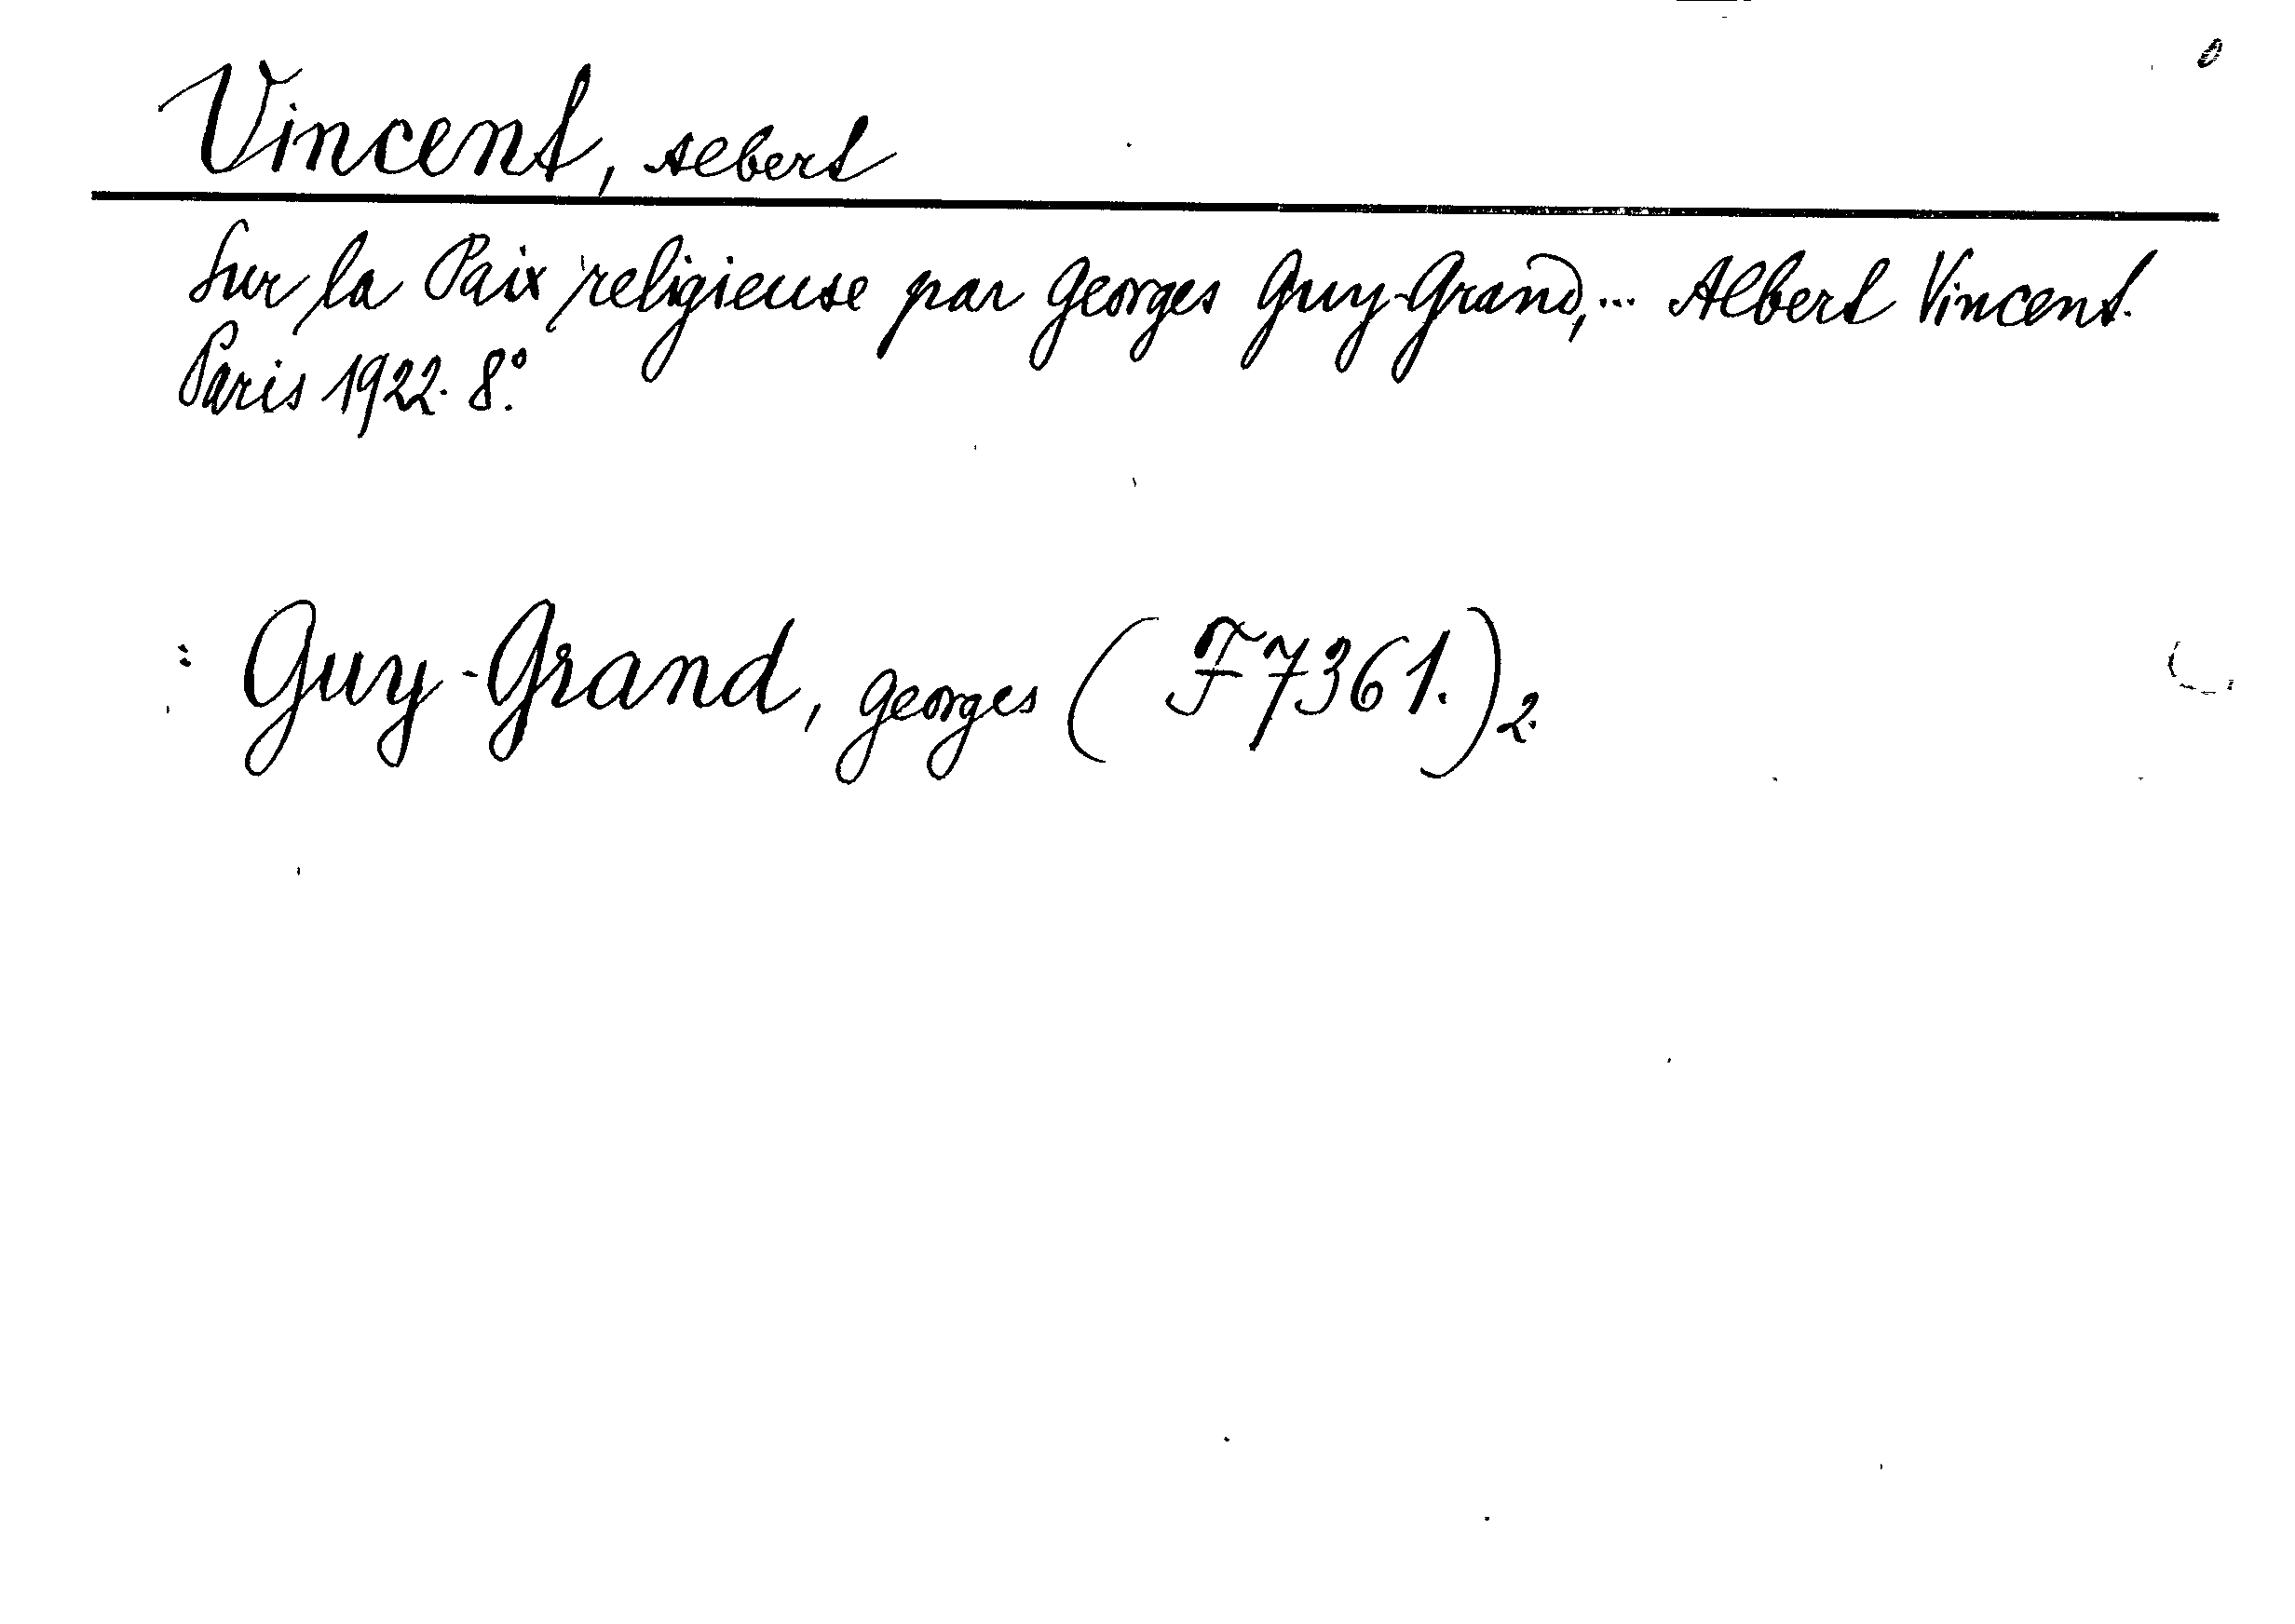 Vincent, Albert
Sur la Paix religieuse par Georges Guy-Grand,... Albert Vincent.
Paris 1922. 8.°
: Guy-Grand, Georges (F7361.)2.